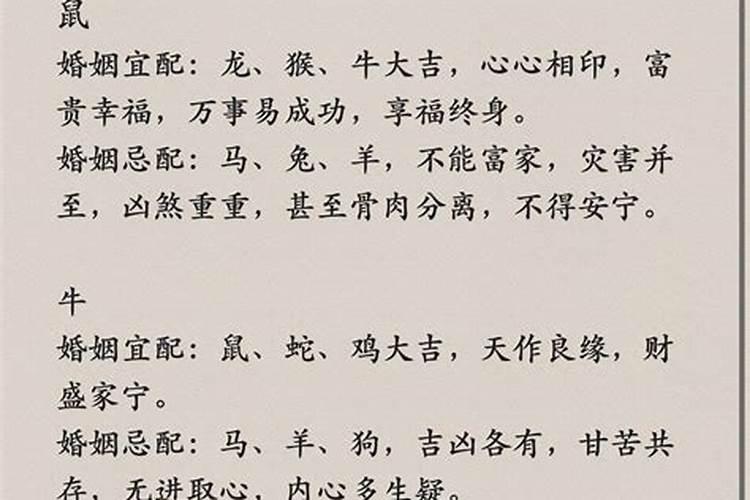 鼠
婚姻宜配：龙、猴、牛大吉，心心相印，富
贵幸福，万事易成功，享福终身。
婚姻忌配：马、兔、羊，不能富家，灾害并
至，凶煞重重，甚至骨肉分离，不得安宁。
牛
婚姻宜配：鼠、蛇、鸡大吉，天作良缘，财
盛家宁。
婚姻忌配：马、羊、狗，吉凶各有，甘苦共
存，无进取心，内心多生疑。